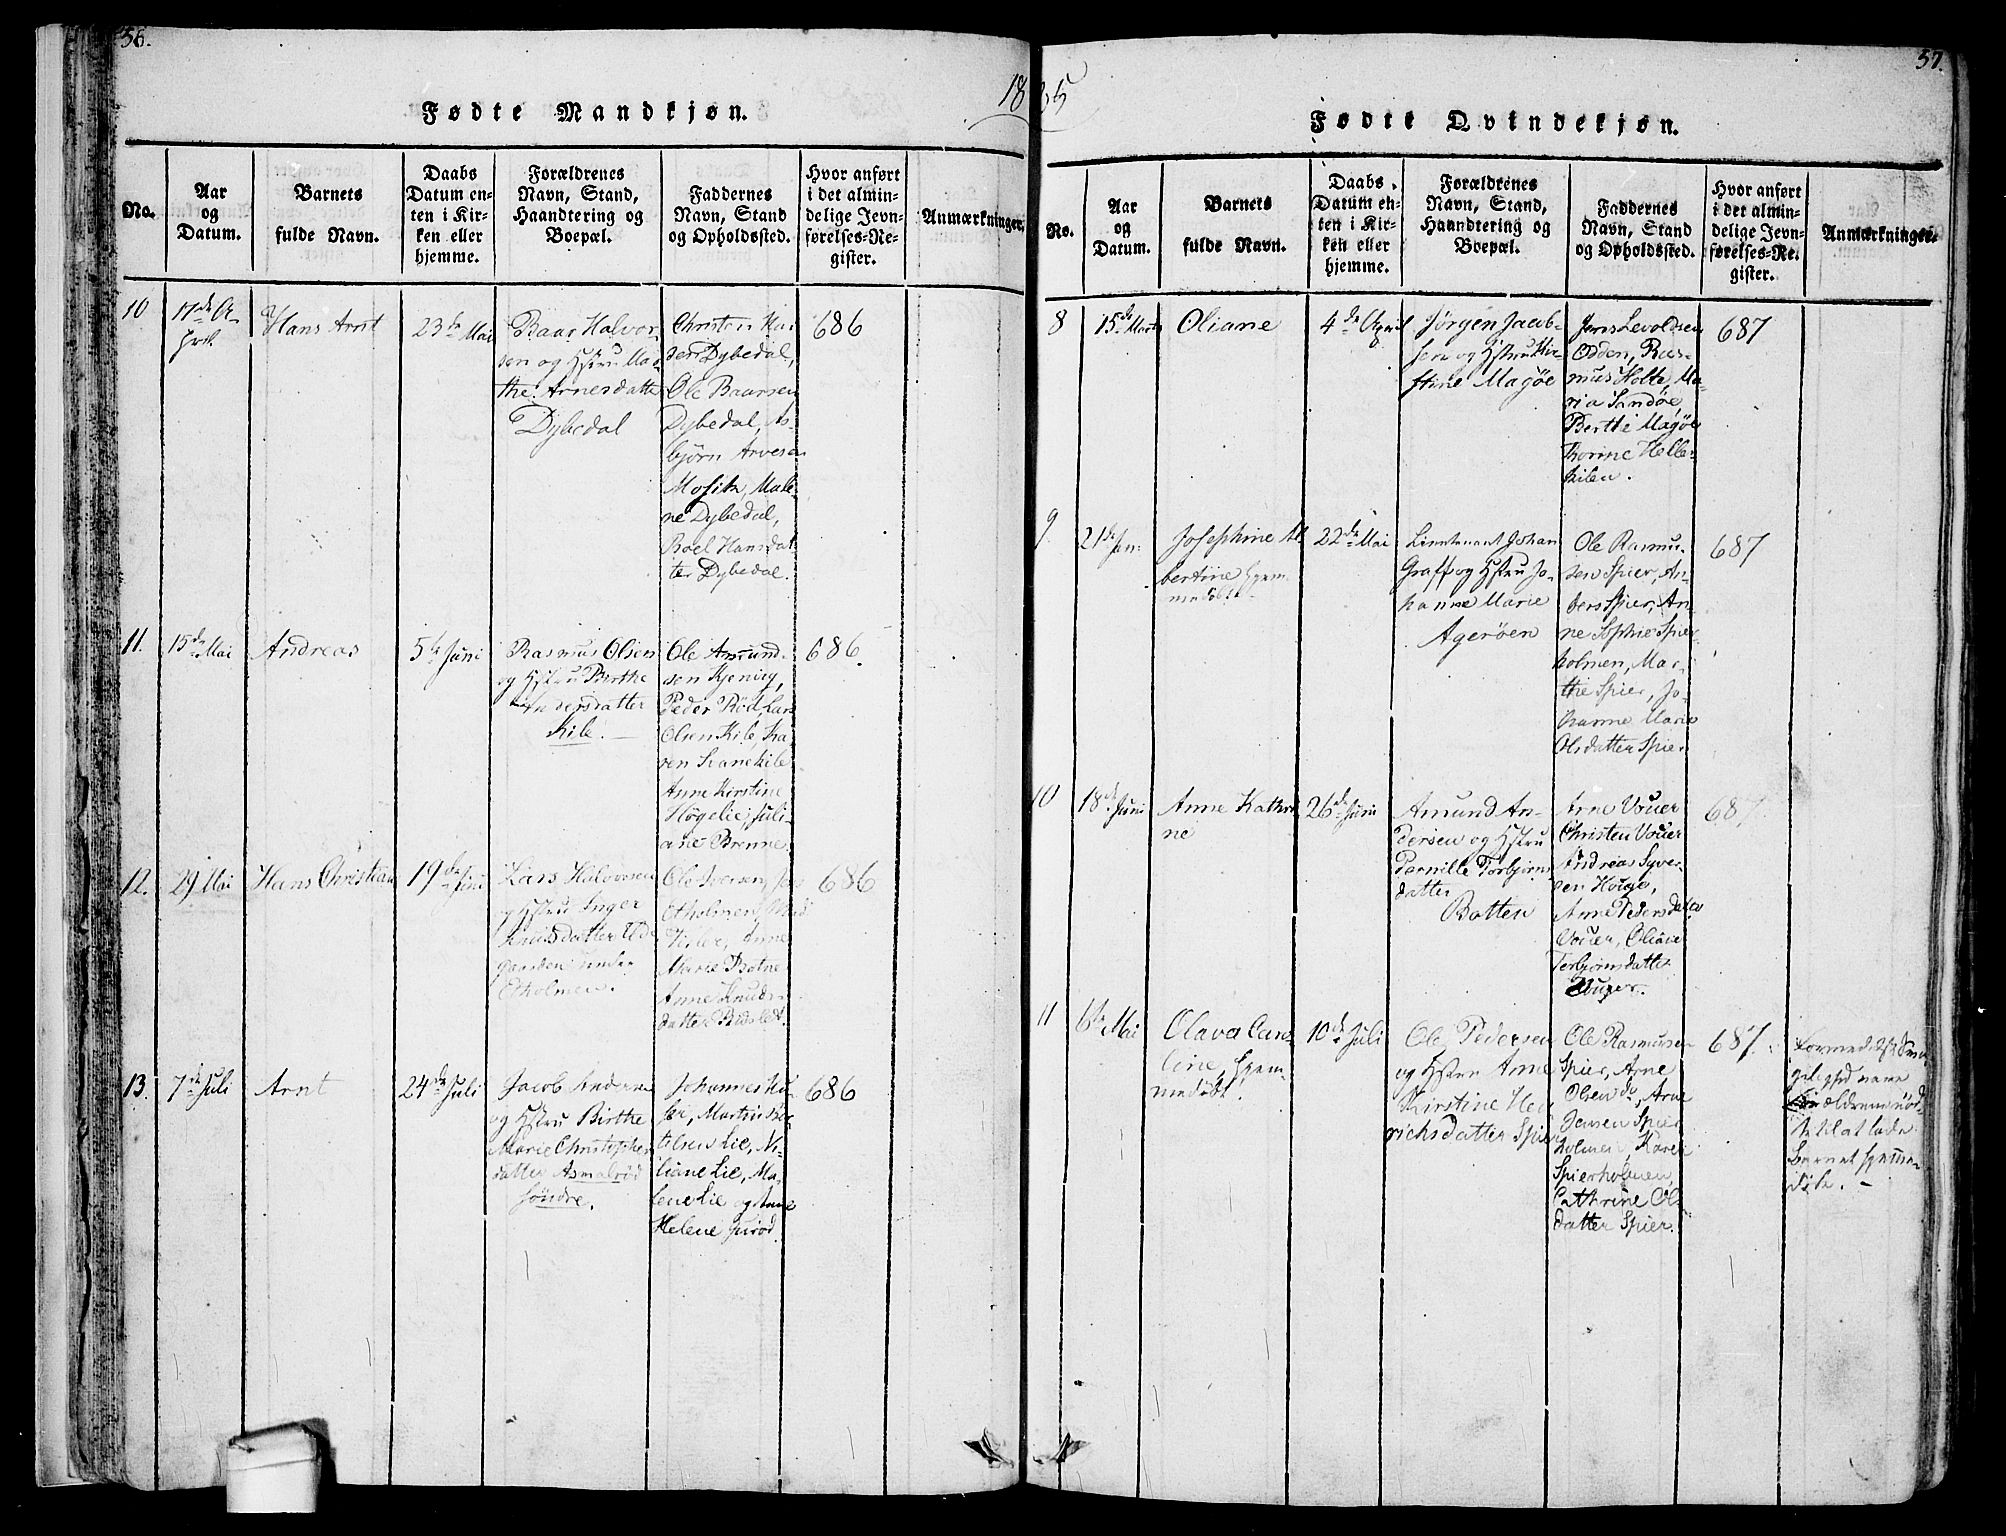 56.
18
Fødte Mandkjøn.
No.
Aar
og
Datum.
Barnets
fulde Navn.
Daabs
Datum en-
ten i Kir-
ken eller
hjemme.
Forældrenes
Navn, Stand,
Haandtering og
Boepæl.
Faddernes
Navn, Stand
og Opholdssted.
Hvor anført
i det almin-
delige Jevn-
førelses-Re-
gister.
Anmærkninger.
10
17de A-
pril
Hans Arnt
23de Mai
Baar Halvor-
sen og Hstru Mar-
the Arnesdatter
Dybedal
Christen Han-
sen Dybedal,
Ole Baarsen
Dybedal, As-
bjørn Arvesen
Male-
ne Dybedal,
Boel Hansdat-
ter Dybedal.
686
11.
15de Mai
Andreas
5te Juni
Rasmus Olsen
og Hstru Birthe
Andersdatter
Kile.
Ole Amund-
sen Kjenug,
Peder Rød, Lars
Olsen Kile, Ka-
ren Svanekile
Anne Kirstine
Høgelie, Juli-
ane Brenne.
686.
12.
29 Mai
Hans Christian
19de Juni
Lars Halvorsen
og Hstru Inger
Knudsdatter
under
Etholmen.
Ole Iversen,
Etholmen,
Anne
Marie Botne
Anne Knuds-
datter
686
13.
7de Juli
Arnt
24de Juli
Jacob Andersen
og Hstru Birthe
Marie Christopher-
datter Asmalrød
søndre.
Johannes
Martin
Lie,
Liane Lie, Ma-
lene Lie og Anne
Helene
686
57.
35
Fødte Qvindekjøn.
No.
Aar
og
Datum.
Barnets
fulde Navn.
Daabs
Datum en-
ten i Kir-
ken eller
hjemme.
Forældrenes
Navn, Stand,
Haandtering og
Boepæl.
Faddernes
Navn, Stand
og Opholdssted.
Hvor anført
i det almin-
delige Jevn-
førelses-Re-
gister.
Anmærkninger.
8
15de Marts
Oliane
4de April
Jørgen Jacob-
sen og Hstru Kir-
stine Magøe
Jens Levoldsen
Odden, Ras-
mus Holte, Ma-
ria Sandøe
Berthe Magøe
Thorine Helle-
kilen.
687
9.
21de Jan:
Josephine Al-
bertine hjem-
medøbt
22de Mai
Lieutenant Johan
Graff og Hstru Jo-
hanne Marie
Agerøen
Ole Rasmu-
sen Spier, An-
ders Spier, An-
ne Sophie Spier-
holmen, Mar-
the Spier, Jo-
hanne Marie
Olsdatter Spier
687
10
18de Juni
Anne Kathri-
ne
26de Juni
Amund An-
dersen og Hstru
Pernille Torbjørns-
datter
Botten
Arne Vouer
Christen Vouer
Andreas Syver-
sen Houge,
Anne Pedersdatter
Vouer, Oliave
Torbjørnsdatter
687.
11
6te Mai
Olava Caro-
line, hjem-
medøbt.
10de Juli
Ole Pedersen
og Hstru Anne
Kirstine Hen-
richsdatter Spier
Ole Rasmusen
Spier, Arne
Olsen do, Arne
Jensen Spier-
holmen, Karen
Spierholmen,
Cathrine Ols-
datter Spier.
687.
Formedelst
have
Forældrene nød-
at lade
Barnet hjemme-
døbe. –